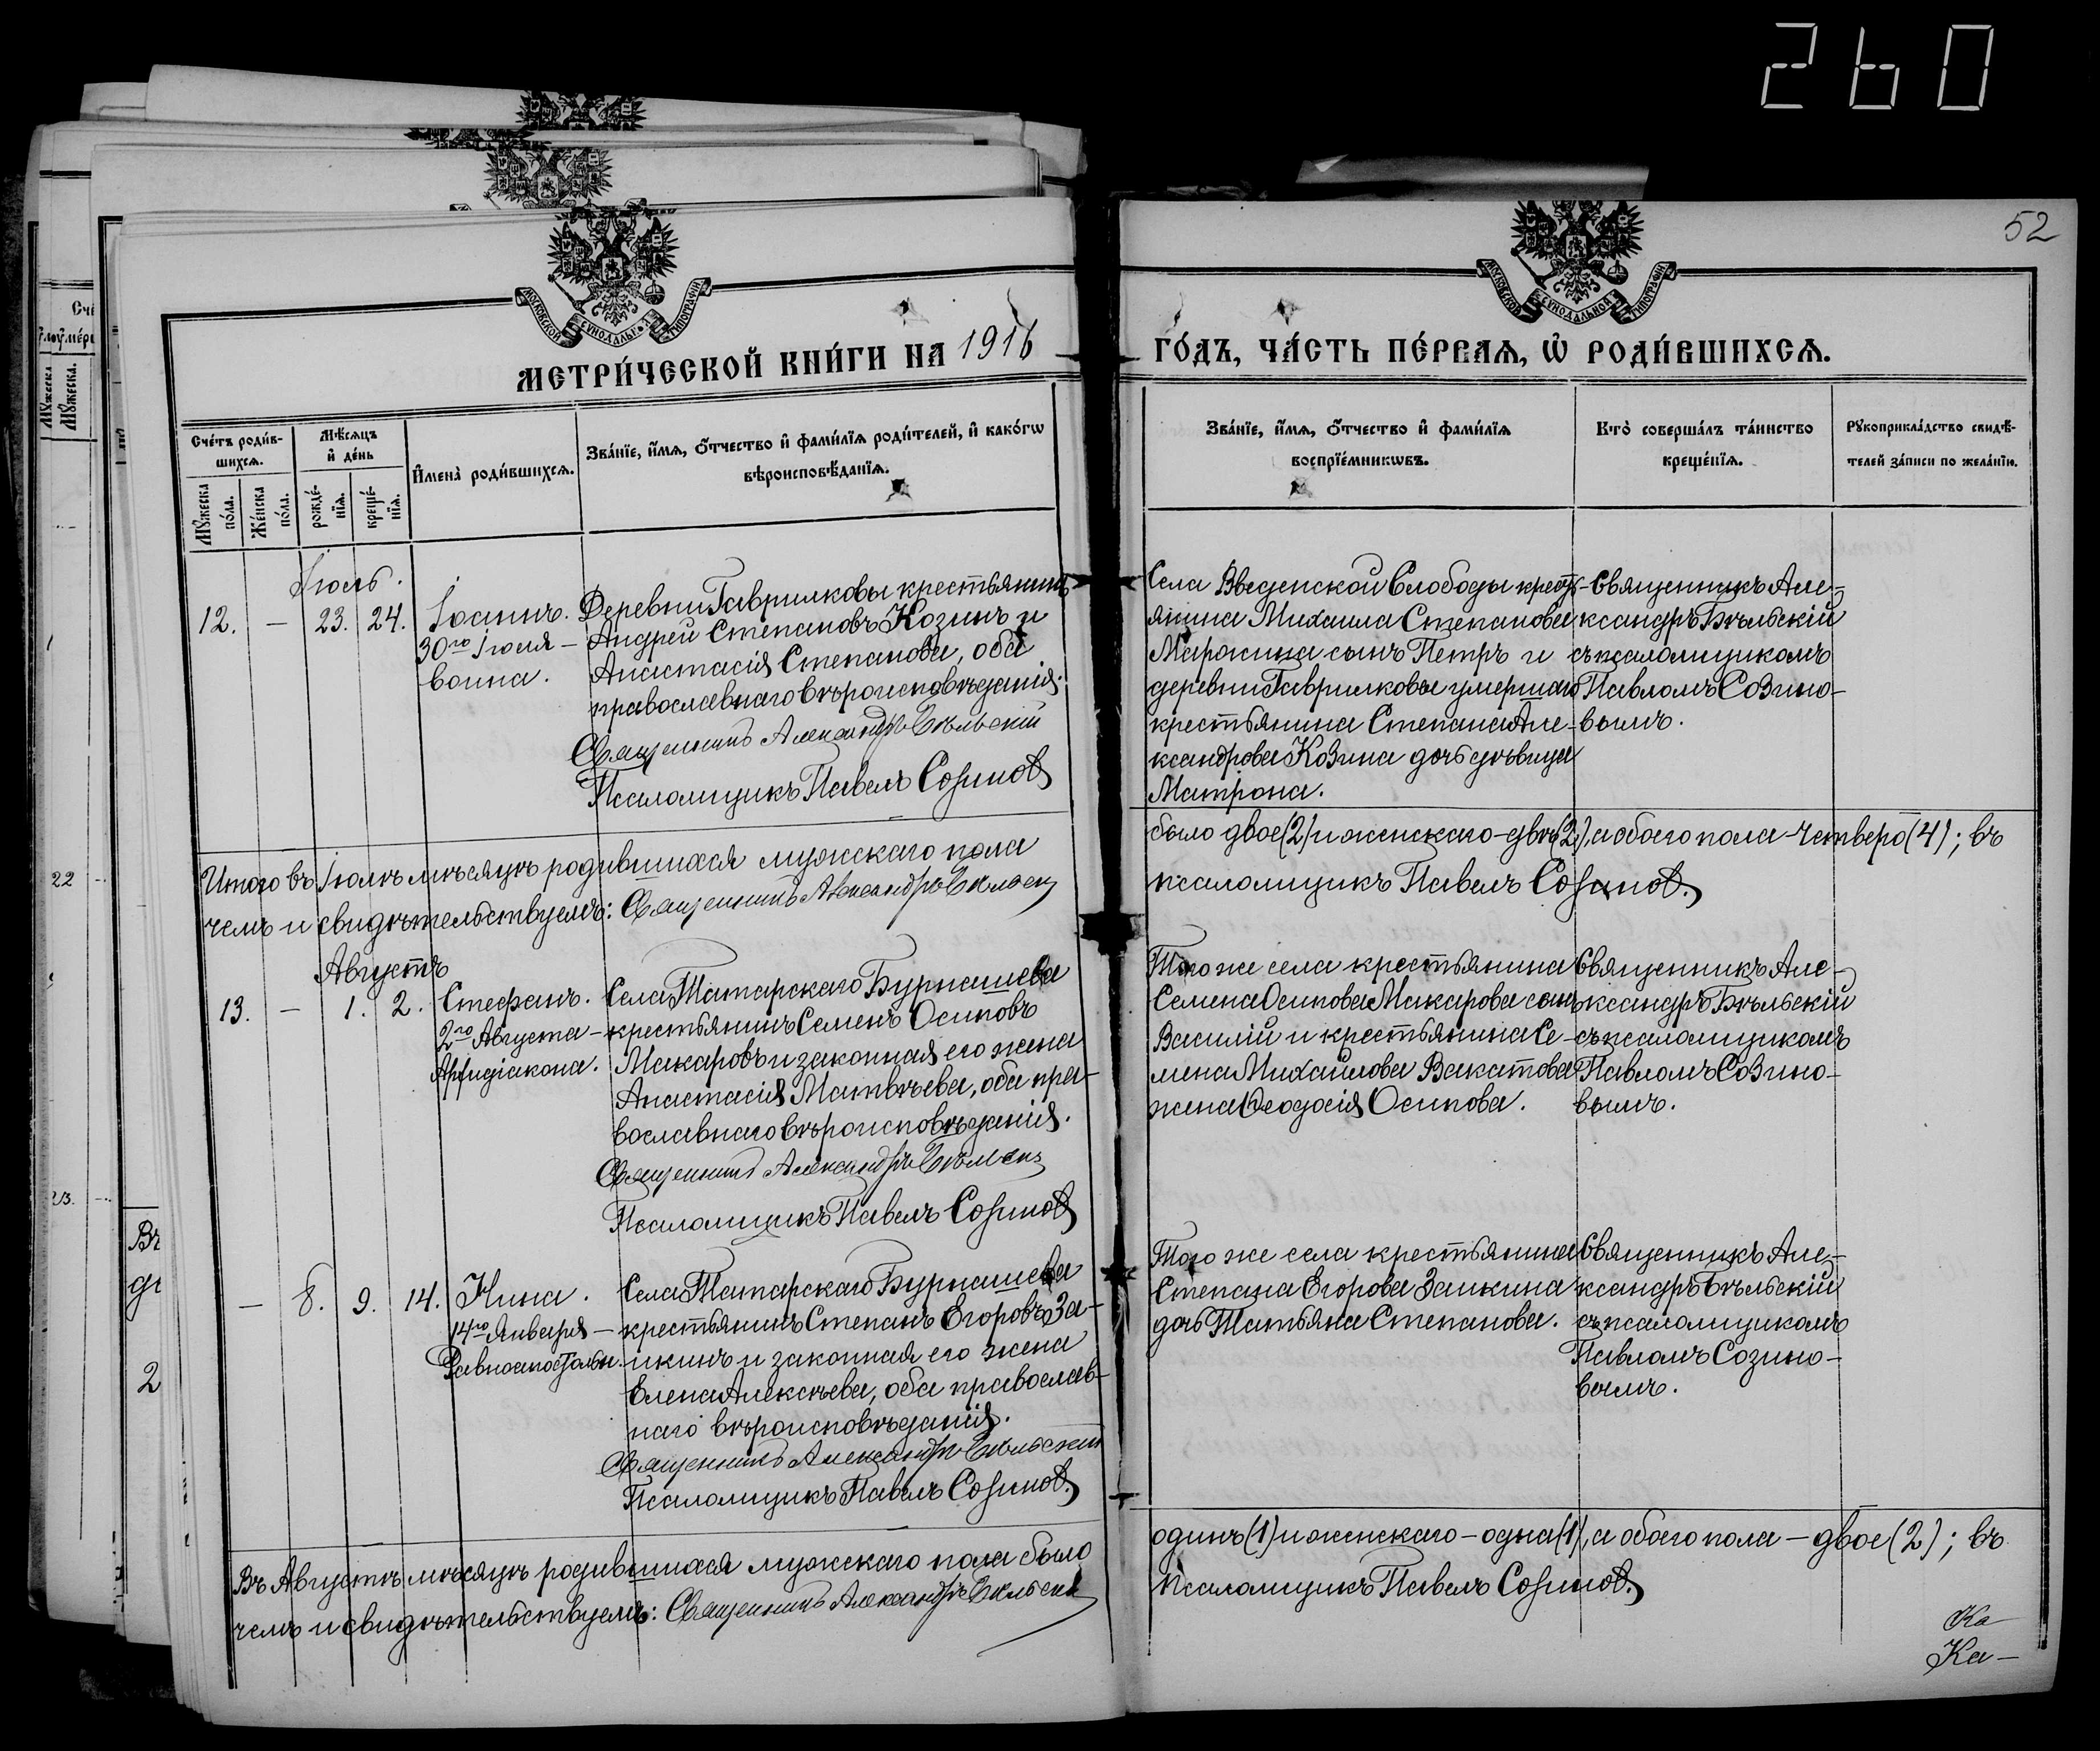 260
52
МОСКОВСКОЙ СѴНОДАЛЬНОЙ ТИПОГРАФІИ
МОСКОВСКОЙ СѴНОДАЛЬНОЙ ТИПОГРАФІИ
МЕТРИ́ЧЕСКОЙ КНИ́ГИ НА 1916
ГО́ДЪ, ЧА́СТЬ ПЕ́РВАѦ, Ѡ҆ РОДИ́ВШИХСѦ.
Сче́тъ роди́в-
шихсѧ.
Мꙋ́жеска
по́ла.
Же́нска
по́ла.
Мѣ́сѧцъ
и҆ де́нь
рожде́-
нїѧ.
креще́-
нїѧ.
И҆мена̀ роди́вшихсѧ.
Зва́нїе, и҆́мѧ, ѻ҆́тчество и҆ фами́лїѧ роди́телей, и҆ како́гѡ
вѣроисповѣ́данїѧ.
Зва́нїе, и҆́мѧ, ѻ҆́тчество и҆ фами́лїѧ
воспрїе́мникѡвъ.
Кто̀ соверша́лъ та́инство
креще́нїѧ.
Рꙋкоприкла́дство свидѣ́-
телей за́писи по жела́нїю.
Іюль.
12. — 23. 24.
Іоаннъ.
30го Іюля —
воина.
Деревни Гаврилковы крестьянинъ
Андрей Степановъ Козинъ и
Анастасія Степанова, оба
православнаго вѣроисповѣданія.
Священникъ Александръ Бѣльскій
Псаломщикъ Павелъ Созинов
Села Введенской Слободы крест-
янина Михаила Степанова
Марокина сынъ Петръ и
деревни Гаврилковы умершаго
крестьянина Степана Але-
ксандрова Козина дочь дѣвица
Матрона.
Священникъ Але-
ксандръ Бѣльскій
съ псаломщикомъ
Павломъ Созино-
вымъ.
Итого въ Іюлѣ мѣсяцѣ родившихся мужскаго пола
было двое (2) и женскаго — двѣ (2), а обоего пола — четверо (4); въ
чемъ и свидѣтельствуемъ: Священникъ Александръ Бѣльскій
псаломщикъ Павелъ Созинов.
Августъ
13. — 1. 2.
Стефанъ.
2го Августа —
Архидіакона.
Села Татарскаго Бурнашева
крестьянинъ Семенъ Осиповъ
Макаровъ и законная его жена
Анастасія Матвѣева, оба пра-
вославнаго вѣроисповѣданія.
Священникъ Александръ Бѣльскій
Псаломщикъ Павелъ Созинов
Того же села крестьянина
Семена Осипова Макарова сынъ
Василій и крестьянина Се-
мена Михаилова Вакатова
жена Ѳеодосія Осипова.
Священникъ Але-
ксандръ Бѣльскій
съ псаломщикомъ
Павломъ Созино-
вымъ.
— 8. 9. 14.
Нина.
14го Января —
Равноапостольн.
Села Татарскаго Бурнашева
крестьянинъ Степанъ Егоровъ За-
икинъ и законная его жена
Елена Алексѣева, оба православ-
наго вѣроисповѣданія.
Священникъ Александръ Бѣльскій
Псаломщикъ Павелъ Созинов.
Того же села крестьянина
Степана Егорова Заикина
дочь Татьяна Степанова.
Священникъ Але-
ксандръ Бѣльскій
съ псаломщикомъ
Павломъ Созино-
вымъ.
Въ Августѣ мѣсяцѣ родившихся мужскаго пола было
одинъ (1) и женскаго — одна (1), а обоего пола — двое (2); въ
чемъ и свидѣтельствуемъ: Священникъ Александръ Бѣльскій
псаломщикъ Павелъ Созинов.
Ка
Ка —